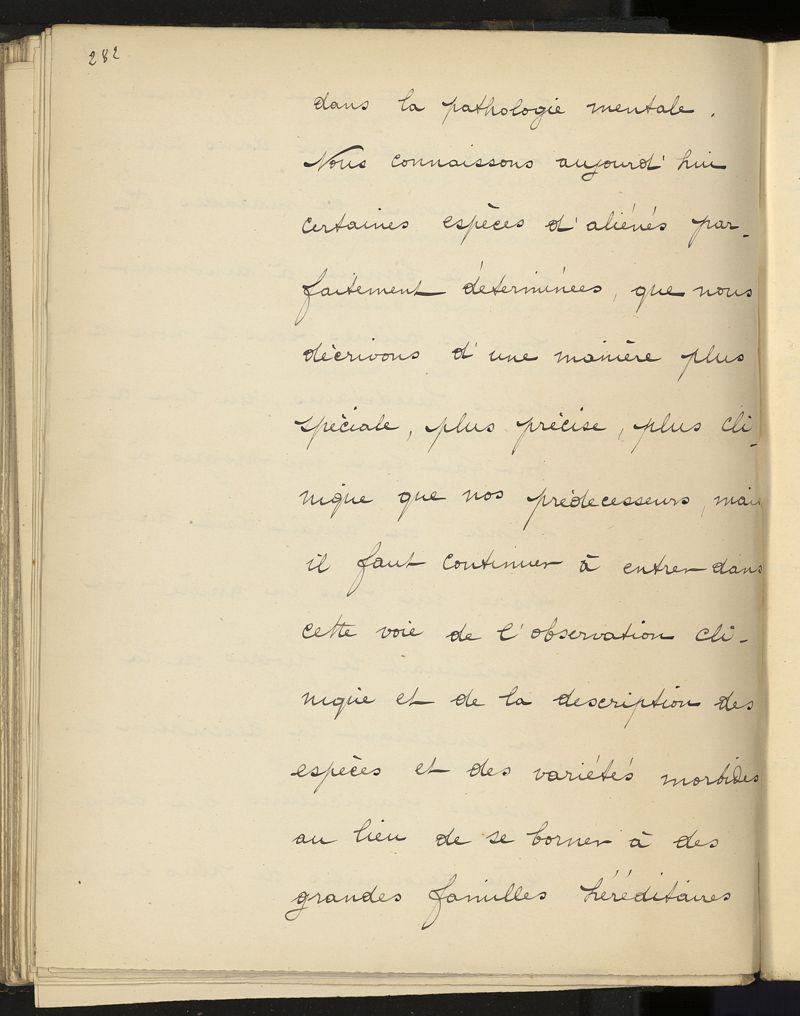 282
dans la pathologie mentale.
Nous connaissons aujourd'hui
certaines espèces d'aliénés par-
faitement déterminées, que nous
décrivons d'une manière plus
spéciale, plus précise, plus cli-
nique que nos prédecesseurs, mais
il faut continuer à entrer dans
cette voie de l'observation cli-
nique et de la description des
espèces et des variétés morbides
au lieu de se borner à des
grandes familles héréditaires